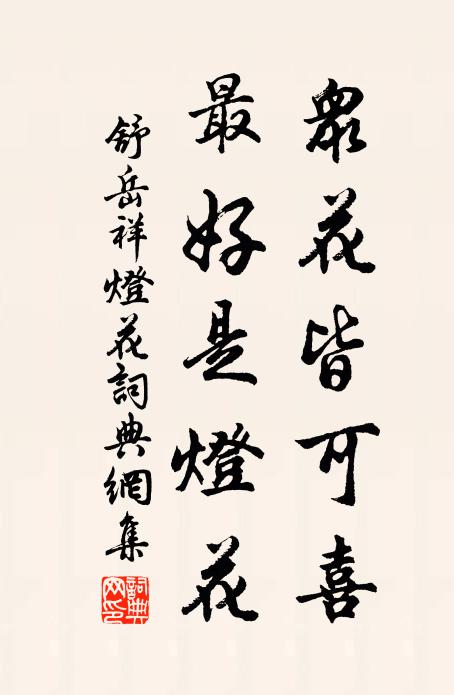 眾花皆可喜
最好是燈花
舒岳祥燈花詞典網集
詞典網印